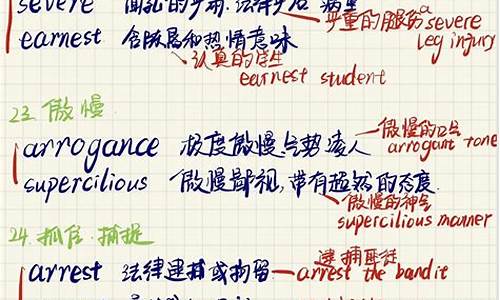 severe
严重的腿伤 a severe leg injury
earnest 含 和热情意味
认真的学生
earnest student
23. 傲慢
arrogance 极度傲慢.气势凌人
傲慢的口气
arrogant tone
supercilious 傲慢鄙视,带有超然的态度.
傲慢的神气
supercilious manner
24. 抓住.捕捉
arrest 法律逮捕或拘留
逮捕匪徒
arrest the bandit